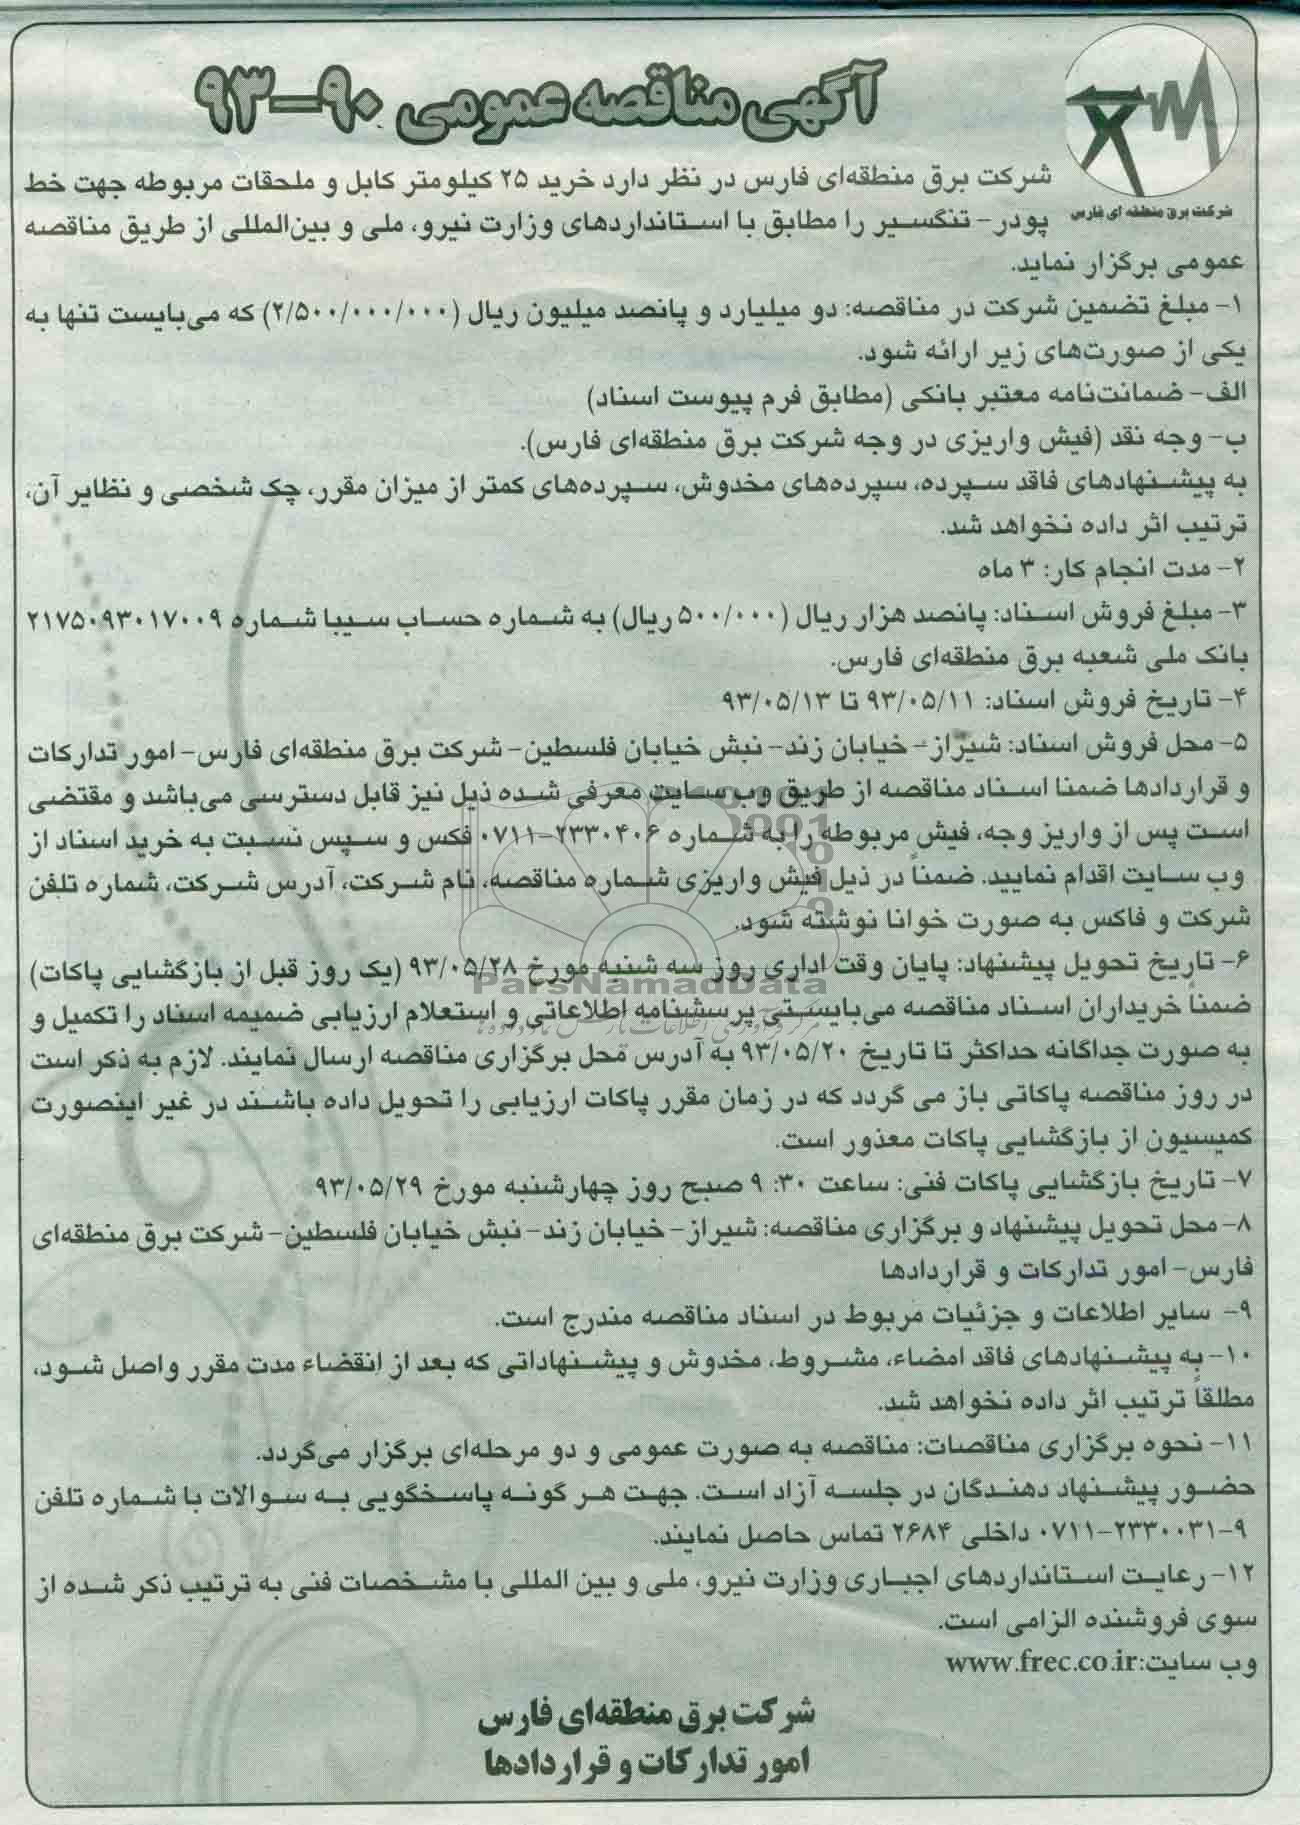 آگهی مناقصه عمومی ۹۰-۹۳
شرکت برق منطقه ای فارس
شرکت برق منطقه‌ای فارس در نظر دارد خرید ۲۵ کیلومتر کابل و ملحقات مربوطه جهت خط
پودر- تنگسیر را مطابق با استانداردهای وزارت نیرو، ملی و بین‌المللی از طریق مناقصه
عمومی برگزار نماید.
۱- مبلغ تضمین شرکت در مناقصه: دو میلیارد و پانصد میلیون ریال (۲/۵۰۰/۰۰۰/۰۰۰) که می‌بایست تنها به
یکی از صورت‌های زیر ارائه شود.
الف- ضمانت‌نامه معتبر بانکی (مطابق فرم پیوست اسناد)
ب- وجه نقد (فیش واریزی در وجه شرکت برق منطقه‌ای فارس).
به پیشنهادهای فاقد سپرده، سپرده‌های مخدوش، سپرده‌های کمتر از میزان مقرر، چک شخصی و نظایر آن،
ترتیب اثر داده نخواهد شد.
۲- مدت انجام کار: ۳ ماه
۳- مبلغ فروش اسناد: پانصد هزار ریال (۵۰۰/۰۰۰ ریال) به شماره حساب سیبا شماره ۲۱۷۵۰۹۳۰۱۷۰۰۹
بانک ملی شعبه برق منطقه‌ای فارس.
۴- تاریخ فروش اسناد: ۹۳/۰۵/۱۱ تا ۹۳/۰۵/۱۳
۵- محل فروش اسناد: شیراز- خیابان زند- نبش خیابان فلسطین- شرکت برق منطقه‌ای فارس- امور تدارکات
و قراردادها ضمنا اسناد مناقصه از طریق وب سایت معرفی شده ذیل نیز قابل دسترسی می‌باشد و مقتضی
است پس از واریز وجه، فیش مربوطه را به شماره ۲۳۳۰۴۰۶-۰۷۱۱ فکس و سپس نسبت به خرید اسناد از
وب سایت اقدام نمایید. ضمناً در ذیل فیش واریزی شماره مناقصه، نام شرکت، آدرس شرکت، شماره تلفن
شرکت و فاکس به صورت خوانا نوشته شود.
۶- تاریخ تحویل پیشنهاد: پایان وقت اداری روز سه شنبه مورخ ۹۳/۰۵/۲۸ (یک روز قبل از بازگشایی پاکات)
ParsNamadData
ضمناً خریداران اسناد مناقصه می‌بایستی پرسشنامه اطلاعاتی و استعلام ارزیابی ضمیمه اسناد را تکمیل و
به صورت جداگانه حداکثر تا تاریخ ۹۳/۰۵/۲۰ به آدرس محل برگزاری مناقصه ارسال نمایند. لازم به ذکر است
در روز مناقصه پاکاتی باز می گردد که در زمان مقرر پاکات ارزیابی را تحویل داده باشند در غیر اینصورت
کمیسیون از بازگشایی پاکات معذور است.
۷- تاریخ بازگشایی پاکات فنی: ساعت ۳۰: ۹ صبح روز چهارشنبه مورخ ۹۳/۰۵/۲۹
۸- محل تحویل پیشنهاد و برگزاری مناقصه: شیراز- خیابان زند- نبش خیابان فلسطین- شرکت برق منطقه‌ای
فارس- امور تدارکات و قراردادها
۹- سایر اطلاعات و جزئیات مربوط در اسناد مناقصه مندرج است.
۱۰- به پیشنهادهای فاقد امضاء، مشروط، مخدوش و پیشنهاداتی که بعد از انقضاء مدت مقرر واصل شود،
مطلقاً ترتیب اثر داده نخواهد شد.
۱۱- نحوه برگزاری مناقصات: مناقصه به صورت عمومی و دو مرحله‌ای برگزار می‌گردد.
حضور پیشنهاد دهندگان در جلسه آزاد است. جهت هر گونه پاسخگویی به سوالات با شماره تلفن
۹-۲۳۳۰۰۳۱-۰۷۱۱ داخلی ۲۶۸۴ تماس حاصل نمایند.
۱۲- رعایت استانداردهای اجباری وزارت نیرو، ملی و بین المللی با مشخصات فنی به ترتیب ذکر شده از
سوی فروشنده الزامی است.
وب سایت:www.frec.co.ir
شرکت برق منطقه‌ای فارس
امور تدارکات و قراردادها